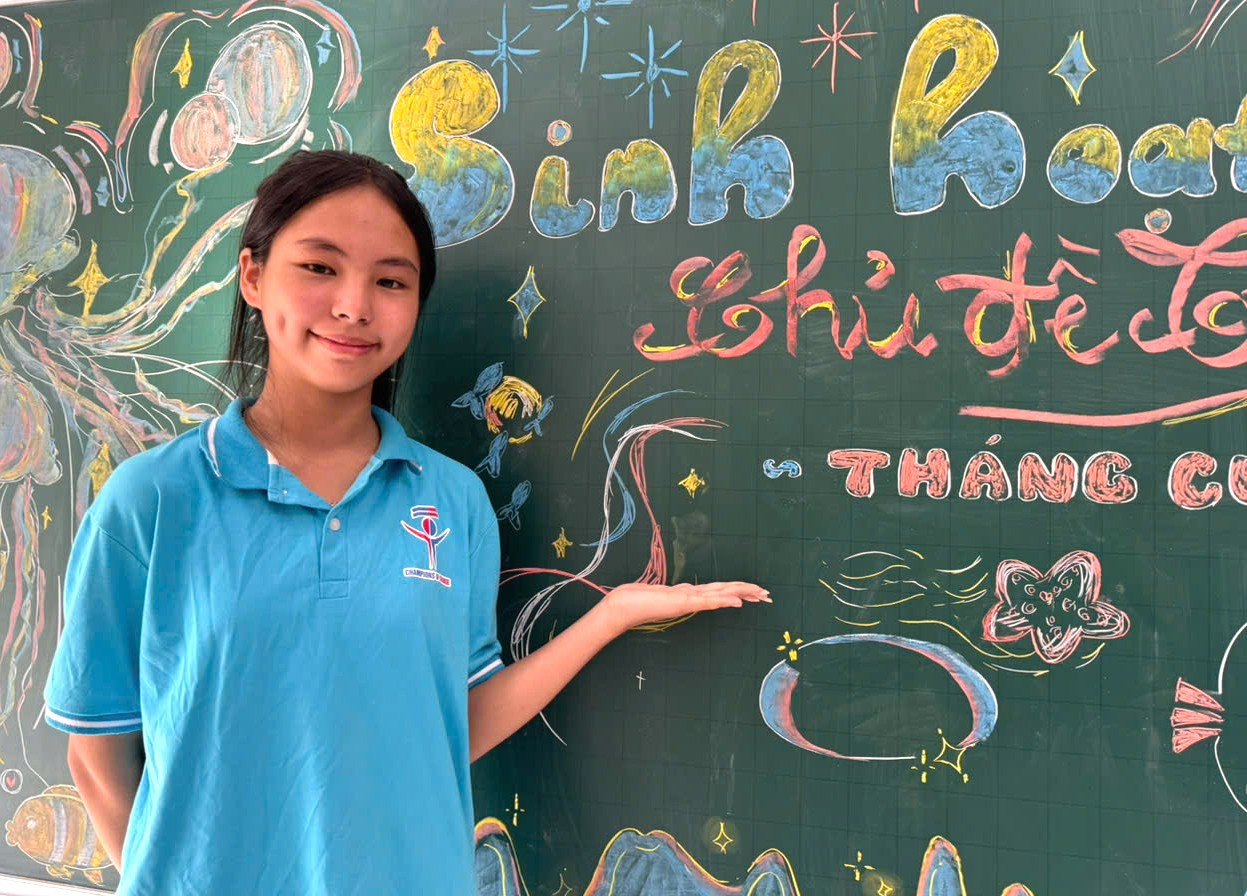 Sinh hoạt
Chủ đề
THÁNG
CHAMPIONS